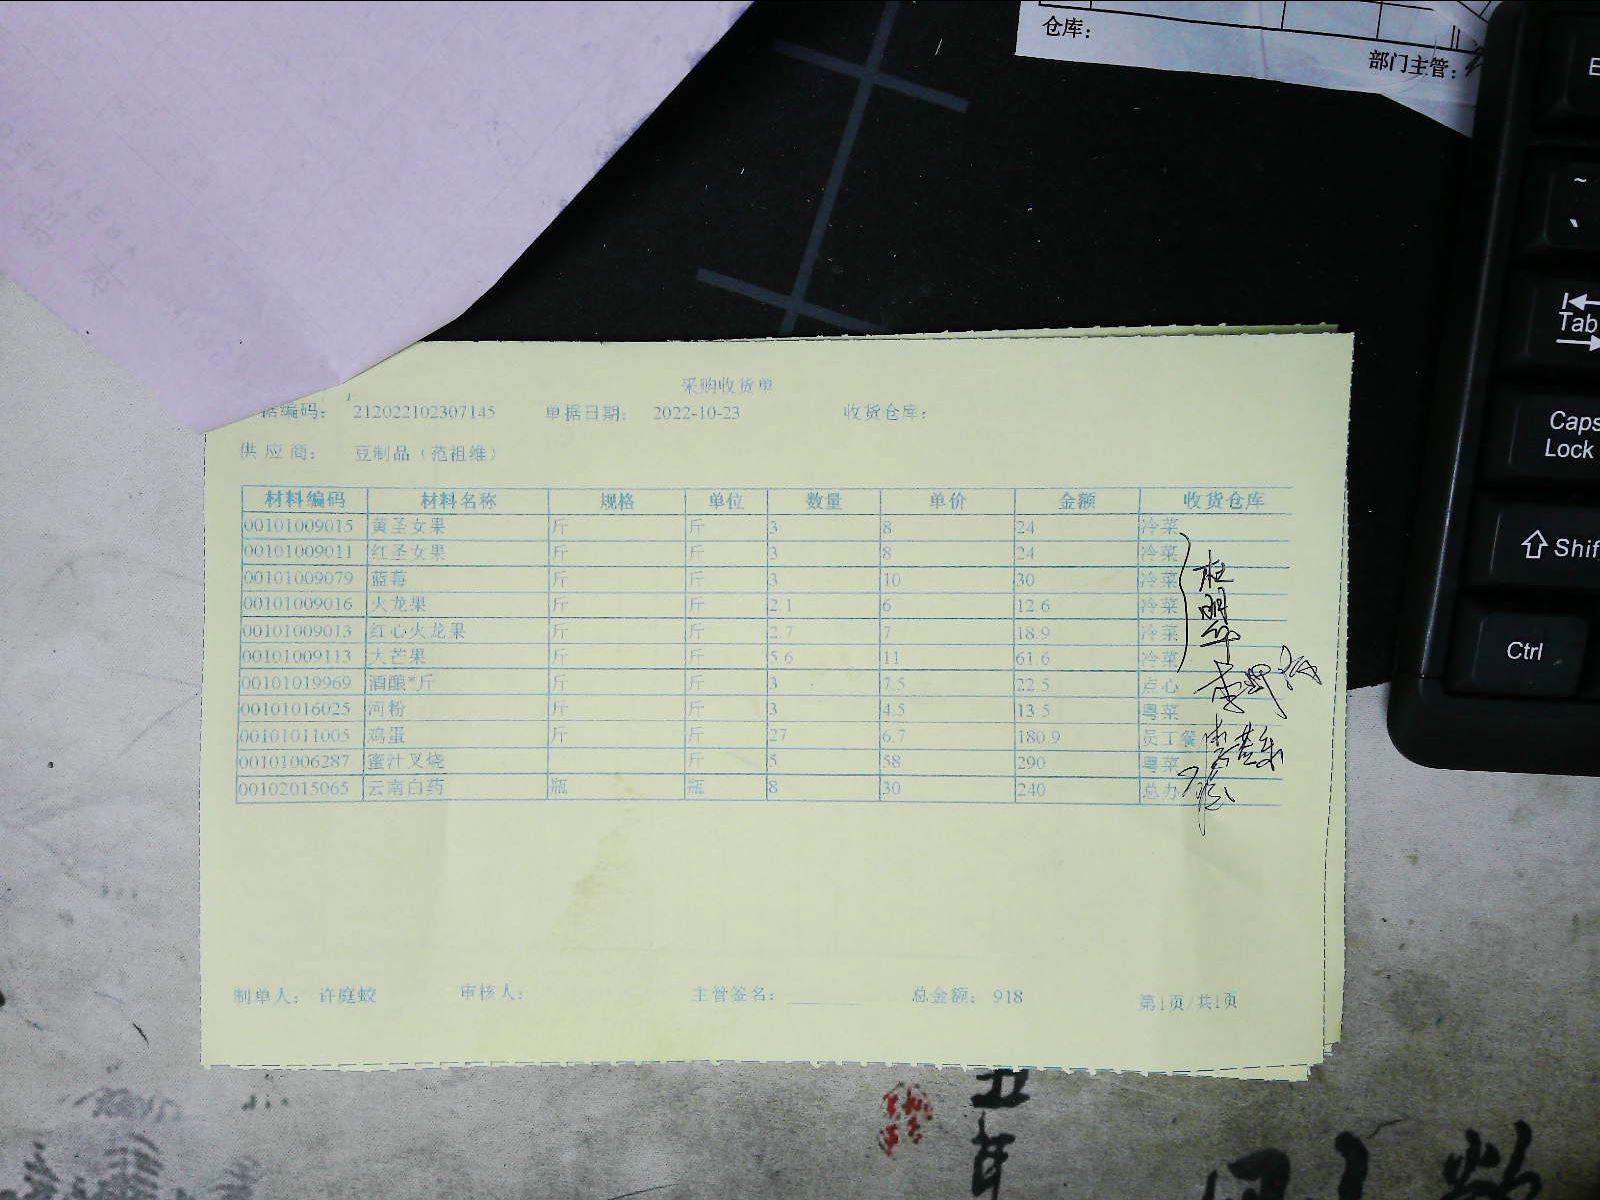 仓库：
部门主管：
~
Tab
Caps Lock
Shif
Ctrl
采购收货单
据编码： 212022102307145 单据日期： 2022-10-23 收货仓库：
供应商： 豆制品（范祖维）
材料编码 材料名称 规格 单位 数量 单价 金额 收货仓库
00101009015 黄圣女果 斤 斤 3 8 24 冷菜
00101009011 红圣女果 斤 斤 3 8 24 冷菜
00101009079 蓝莓 斤 斤 3 10 30 冷菜
00101009016 火龙果 斤 斤 2.1 6 12.6 冷菜
00101009013 红心火龙果 斤 斤 2.7 7 18.9 冷菜
00101009113 大芒果 斤 斤 5.6 11 61.6 冷菜
00101019969 酒酿*斤 斤 斤 3 7.5 22.5 点心
00101016025 河粉 斤 斤 3 4.5 13.5 粤菜
00101011005 鸡蛋 斤 斤 27 6.7 180.9 员工餐
00101006287 蜜汁叉烧 斤 5 58 290 粤菜
00102015065 云南白药 瓶 瓶 8 30 240 总办
制单人： 许庭蛟 审核人： 主管签名： 总金额： 918 第1页/共1页